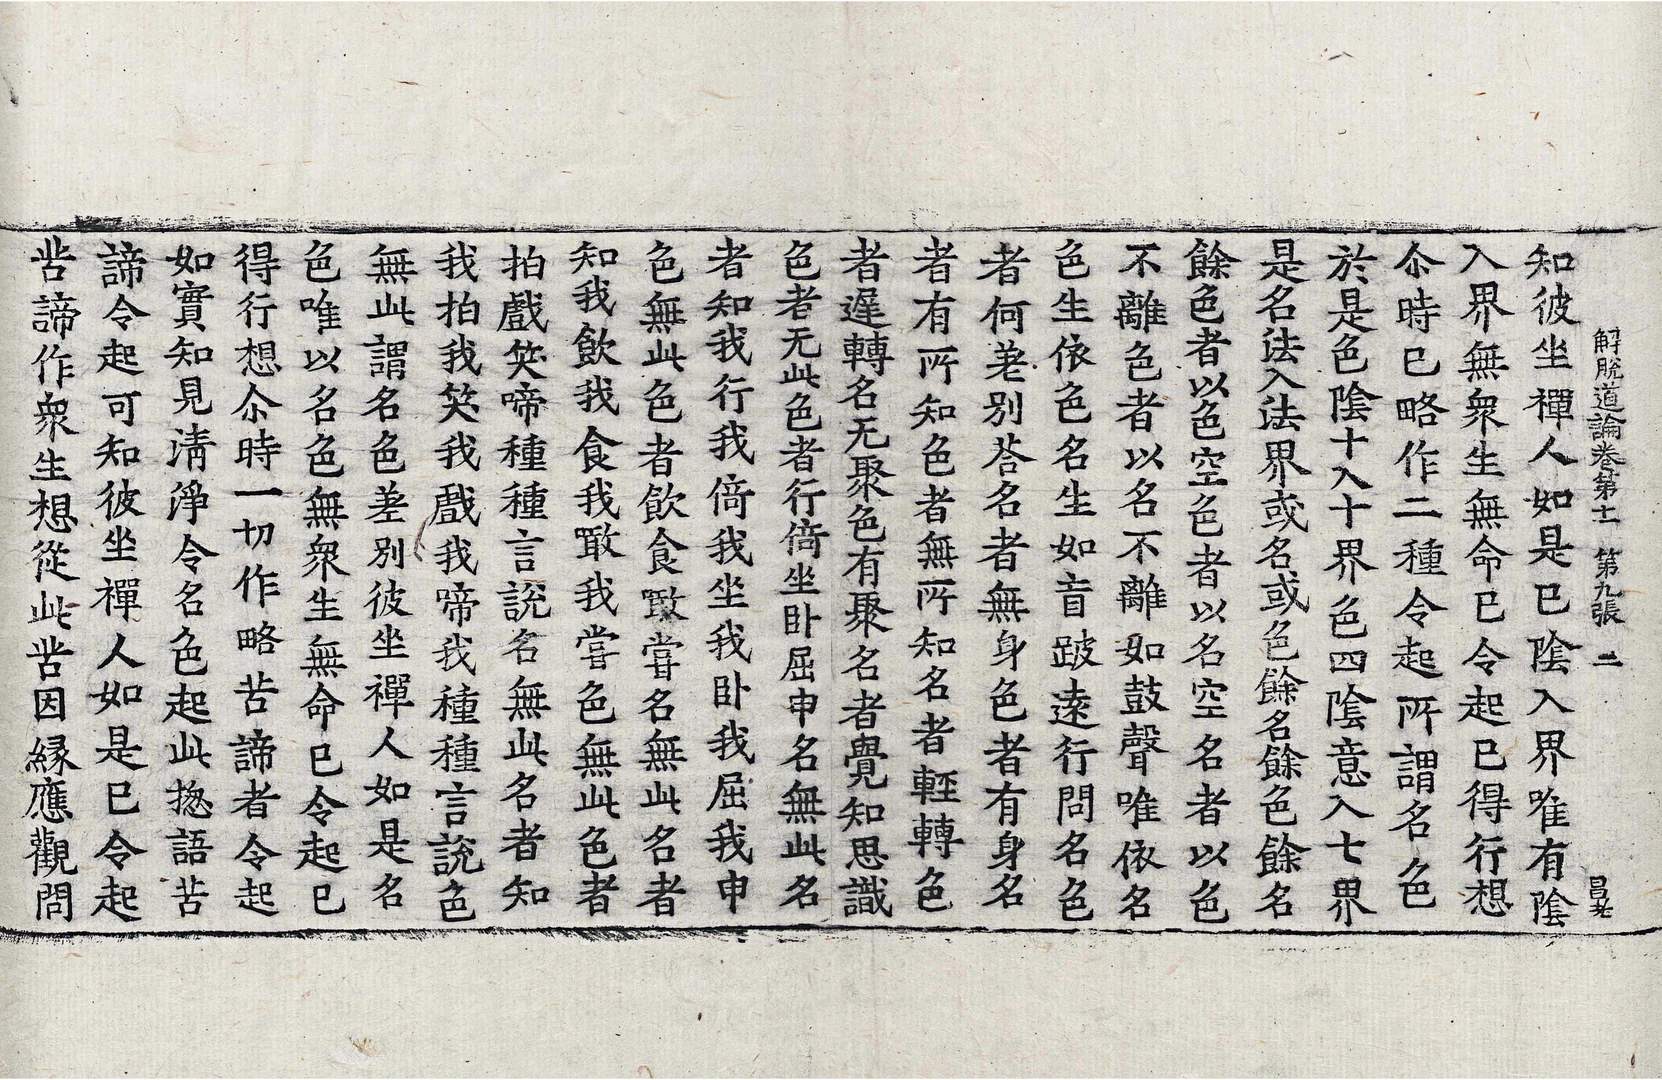 解脫道論卷第十一 第九張 二 昌老
知彼坐禪人如是已陰入界唯有陰
入界無衆生無命已令起已得行想
尒時已略作二種令起所謂名色
於是色陰十入十界色四陰意入七界
是名法入法界或名或色餘名餘色餘名
餘色者以色空色者以名空名者以色
不離色者以名不離如鼓聲唯依名
色生依色名生如盲跛遠行問名色
者何差別答名者無身色者有身名
者有所知色者無所知名者輕轉色
者遲轉名无聚色有聚名者覺知思識
色者无此色者行倚坐卧屈申名無此名
者知我行我倚我坐我卧我屈我申
色無此色者飲食噉嘗名無此名者
知我飲我食我噉我嘗色無此色者
拍戲笑啼種種言說名無此名者知
我拍我笑我戲我啼我種種言說色
無此謂名色差別彼坐禪人如是名
色唯以名色無衆生無命已令起已
得行想尒時一切作略苦諦者令起
如實知見清淨令名色起此揔語苦
諦令起可知彼坐禪人如是已令起
苦諦作衆生想從此苦因緣應觀問